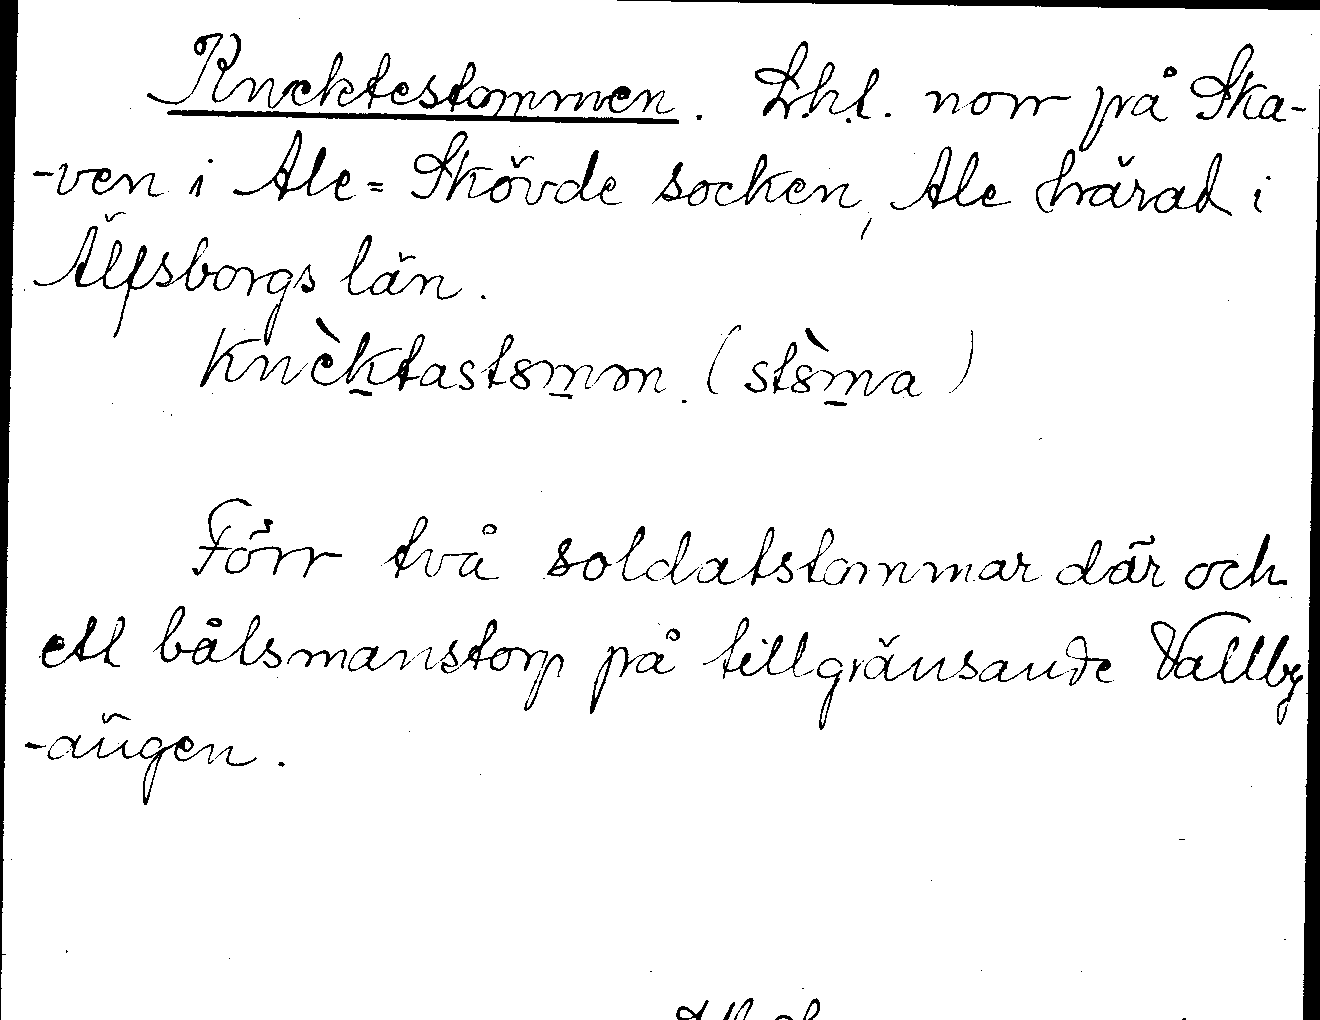 Knektestommen. Lht. norr på Ska-
-ven i Ale=Skövde socken, Ale härad i
Älfsborgs län.
Knèktastomm. (stòma)
Förr två soldatstommar där och
ett båtsmanstorp på tillgränsande Vallby
-ängen.